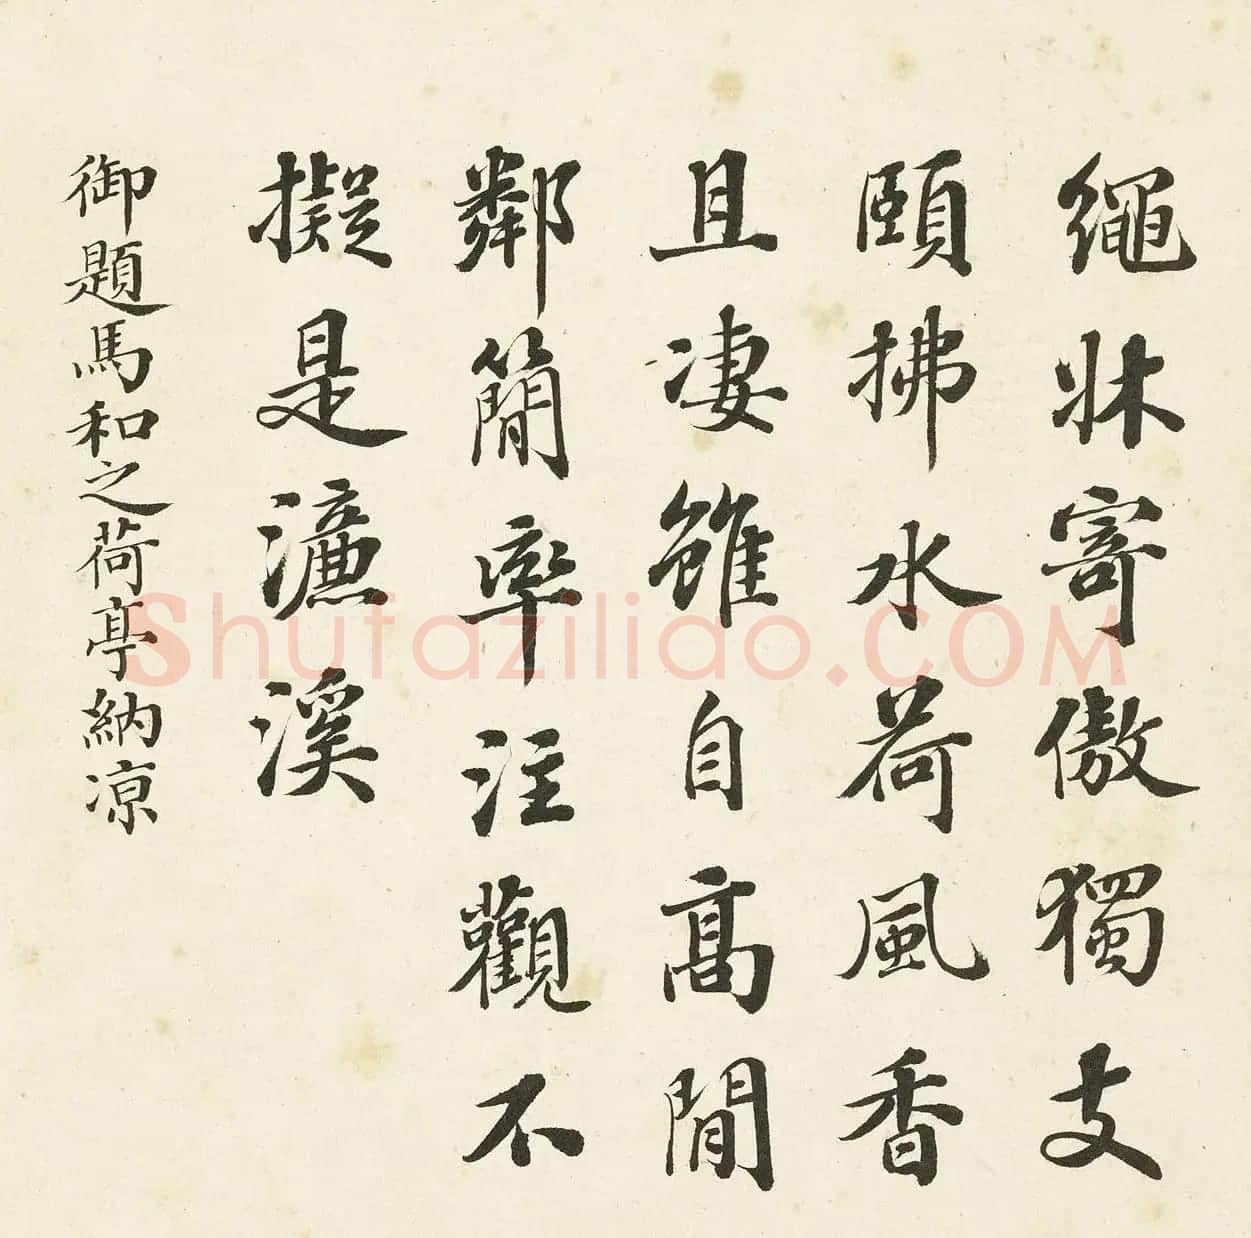 繩牀寄傲獨支
頤拂水荷風香
且淒雖自高閒
鄰簡率注觀不
擬是濂溪
御題馬和之荷亭納涼
Shufaziliao.COM